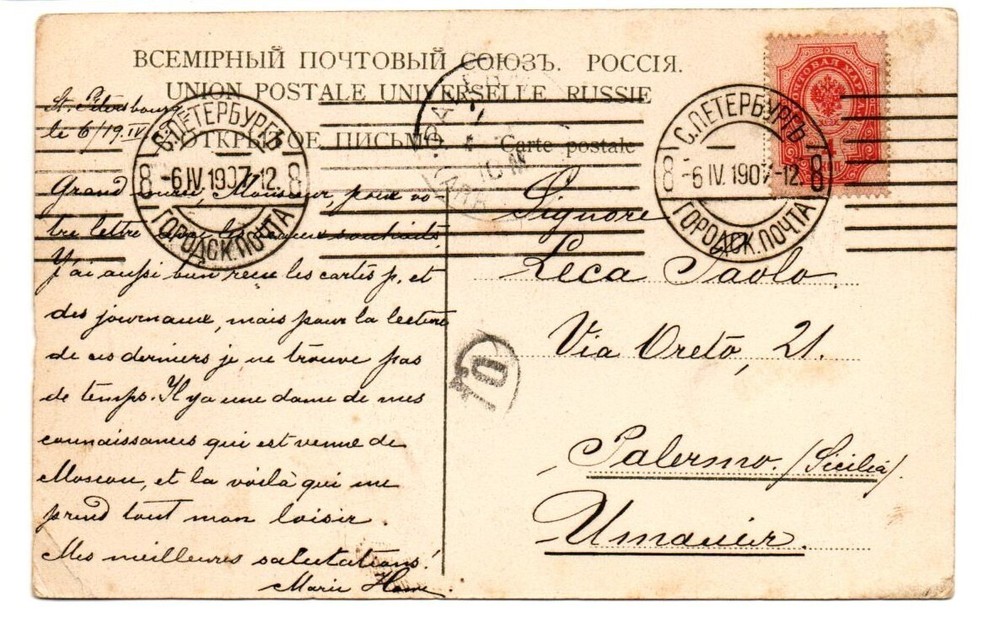 ВСЕМІРНЫЙ ПОЧТОВЫЙ СОЮЗЪ. РОССІЯ.
UNION POSTALE UNIVERSELLE. RUSSIE
ОТКРЫТОЕ ПИСЬМО. Carte postale
ПОЧТОВАЯ МАРКА
С.ПЕТЕРБУРГЪ
8 -6 IV. 1907-12. 8
ГОРОДСК.ПОЧТА
С.ПЕТЕРБУРГЪ
8 -6 IV. 1907-12. 8
ГОРОДСК.ПОЧТА
St. Pétersbourg
le 6/19. IV
Grand merci, Monsieur, pour vo
tre lettre souhaits.
J'ai aussi bien reçu les cartes p. et
des journaux, mais pour la lecture
de ces derniers je ne trouve pas
de temps. Il y a une dame de mes
connaissances qui est venue de
Moscou, et la voilà qui me
prend tout mon loisir.
Mes meilleures salutations!
Marie
Signore
Leca Paolo.
Via Oreto, 21.
Palermo. (Sicilia).